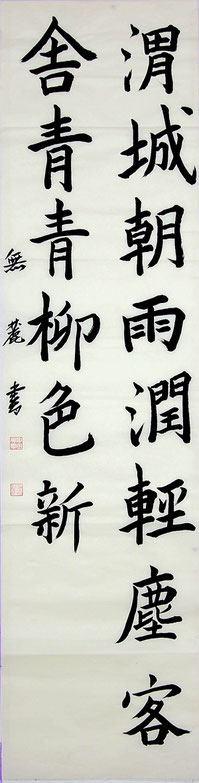 渭城朝雨潤輕塵客
舍青青柳色新
無蔍書